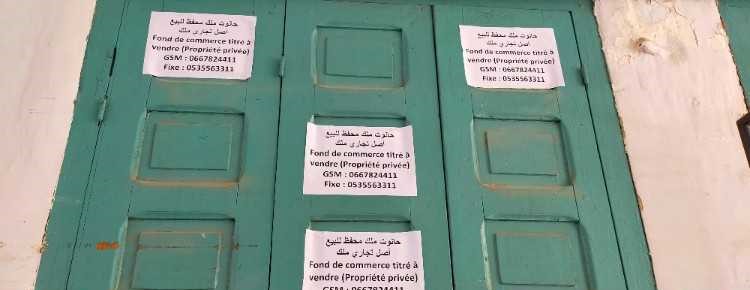 حانوت ملك محفظ للبيع
اصل تجاري ملك
Fond de commerce titré à
vendre (Propriété privée)
GSM : 0667824411
Fixe : 0535563311
حانوت ملك محفظ للبيع
اصل تجاري ملك
Fond de commerce titré à
vendre (Propriété privée)
GSM : 0667824411
Fixe : 0535563311
حانوت ملك محفظ للبيع
اصل تجاري ملك
Fond de commerce titré à
vendre (Propriété privée)
GSM : 0667824411
Fixe : 0535563311
حانوت ملك محفظ للبيع
اصل تجاري ملك
Fond de commerce titré à
vendre (Propriété privée)
GSM : 0667824411